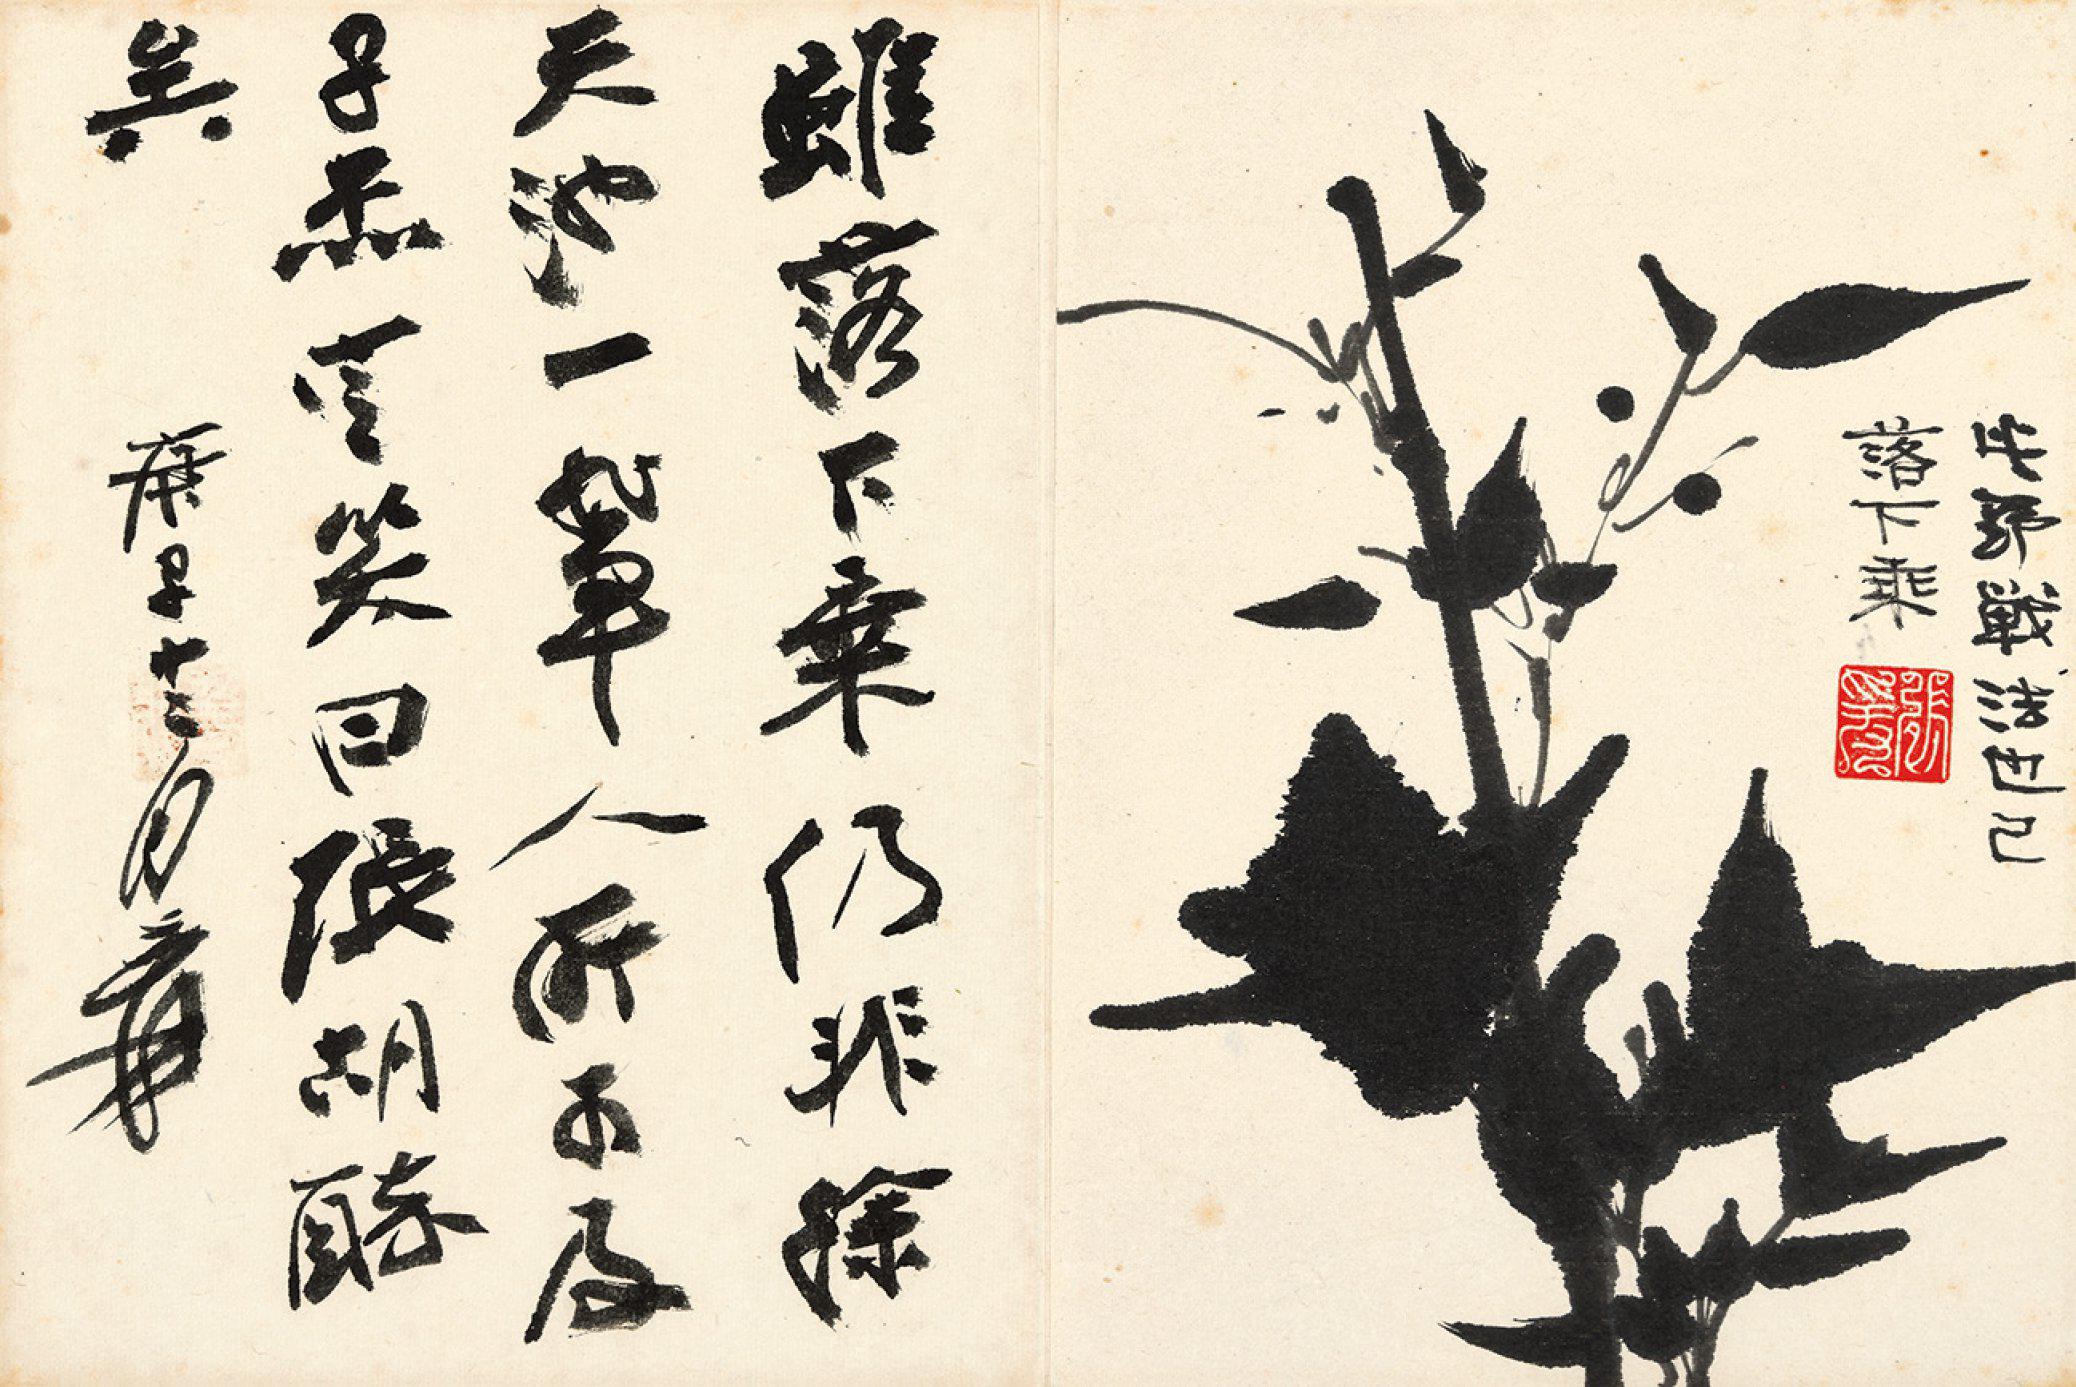 此野戰法也已
落下乘
張爰
雖落下乘仍非徐
天池一輩人所不及
子杰笑曰張胡
矣
庚子十二月爰